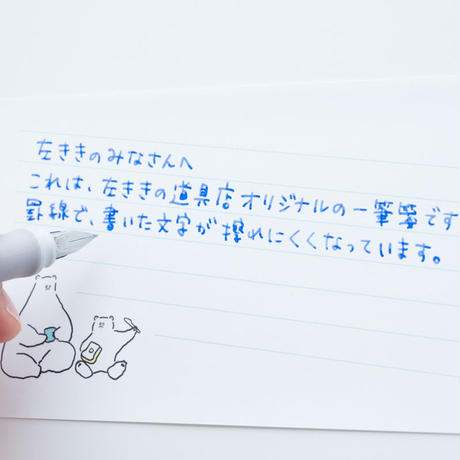 左ききのみなさんへ
これは、左ききの道具店オリジナルの一筆箋です
罫線で、書いた文字が擦れにくくなっています。